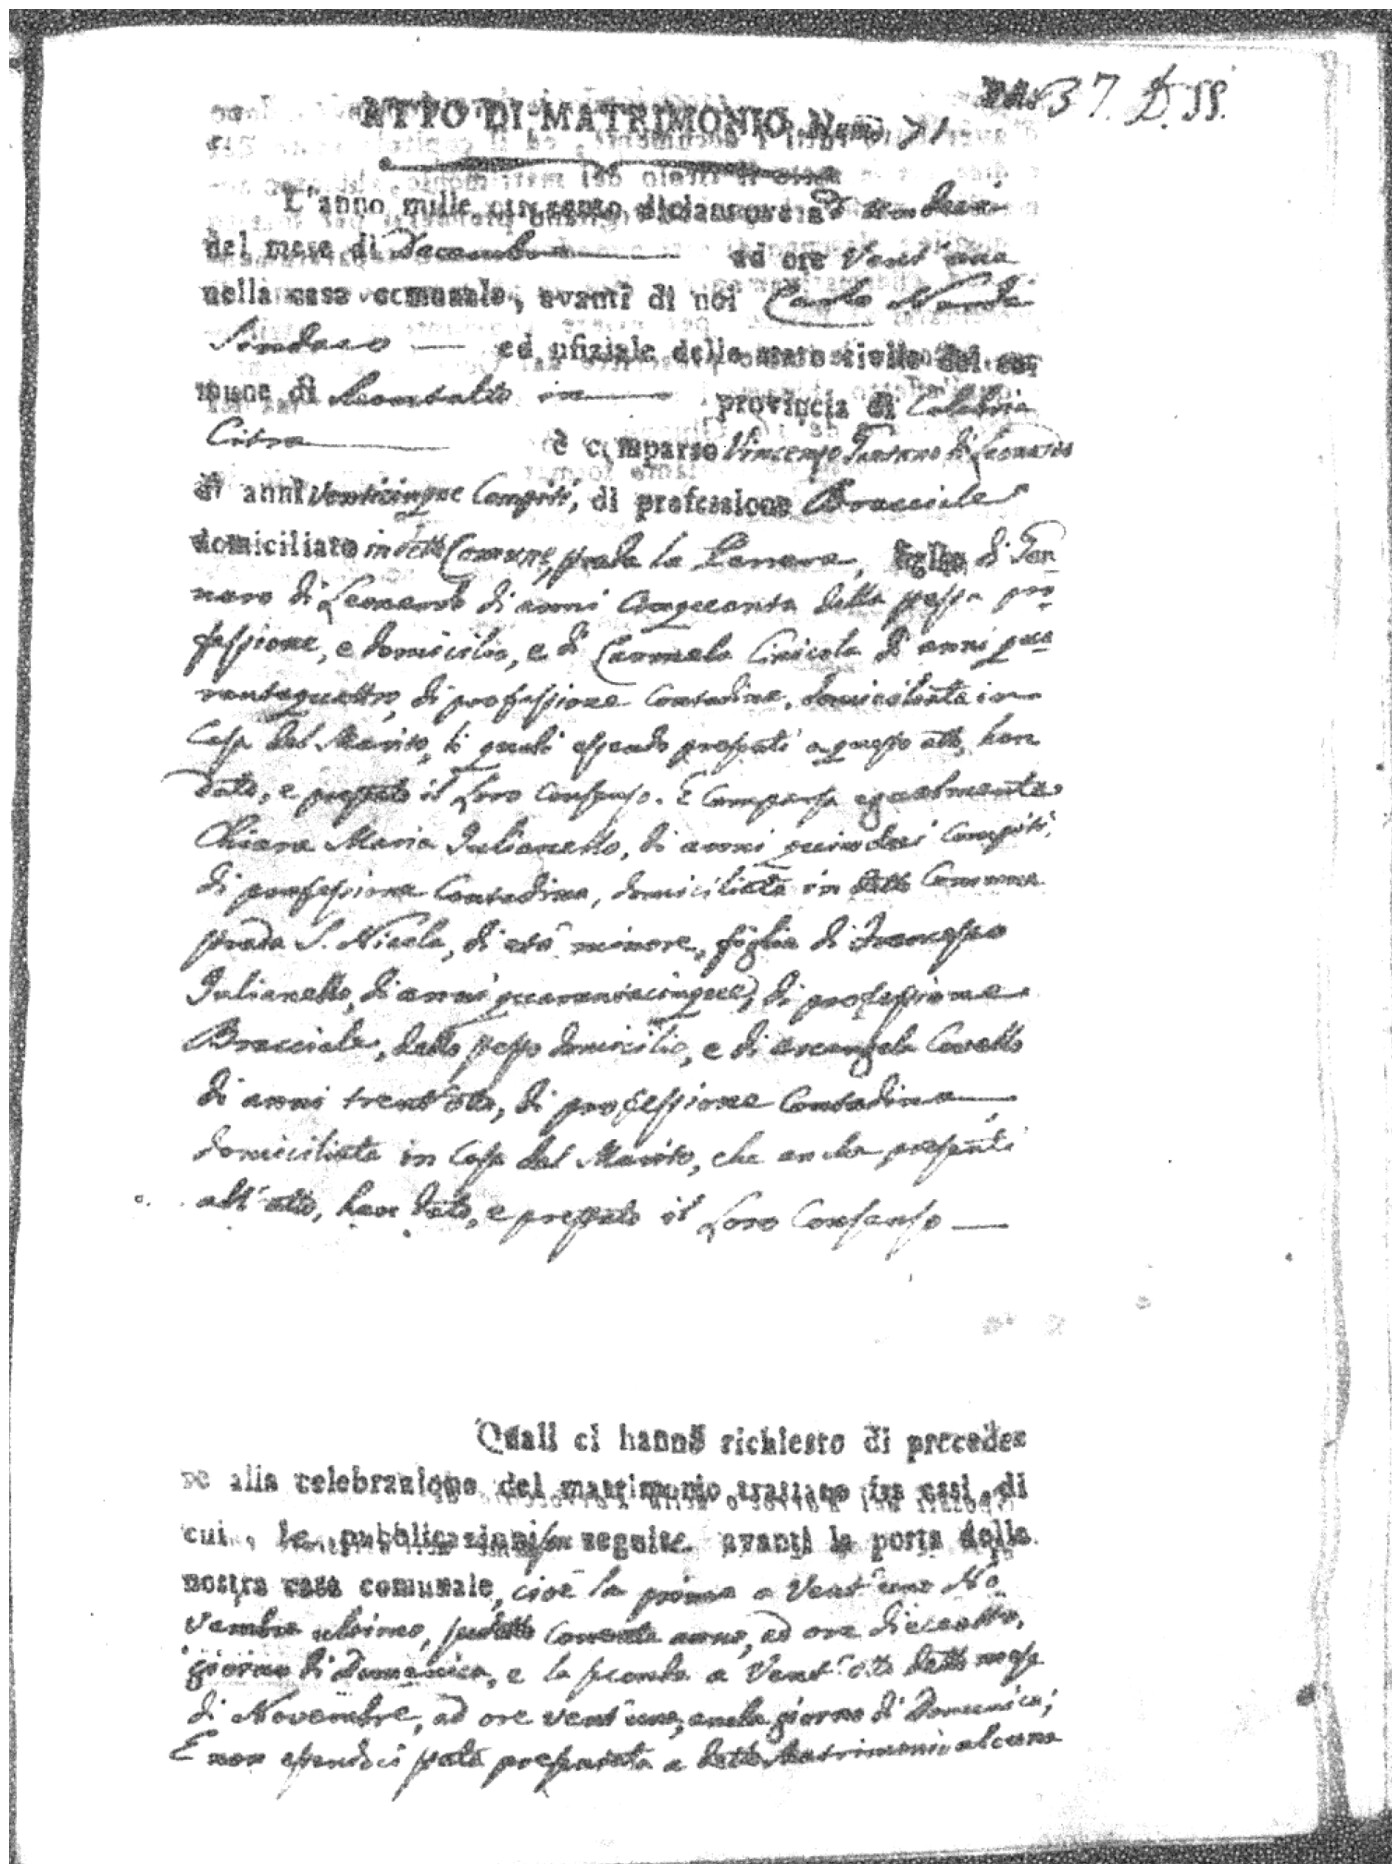 37. D. SS.
ATTO DI MATRIMONIO Num. 71
L'anno mille ottocento diciannove a dì undeci
del mese di Decembre ad ore Vent' una
nella casa comunale, avanti di noi Carlo Nardi
Sindaco ed ufiziale dello stato civile del co-
mune di Montalto in provincia di Calabria
Citra è comparso Vincenzo di Leonardo
di anni Venticinque Compiti, di professione Bracciale
domiciliato in detto Comune, strada la, figlio di Gen
naro di Leonardo di anni Cinquanta della stessa pro
fessione, e domicilio, e di Carmela di anni qua
rantaquattro, di professione Contadina, domiciliata in
Casa del Marito, li quali essendo presenti a questo atto, han
dato, e prestato il Loro Consenso. E Comparsa egualmente
Chiara Maria Iulianello, di anni quindeci Compiti,
di professione Contadina, domiciliata in detto Comune
strada S. Nicola, di età minore, figlia di Francesco
Iulianello, di anni quarantacinque, di professione
Bracciale, dello stesso domicilio, e di Arcangela Covello
di anni trent'otto, di professione Contadina
domiciliata in Casa del Marito, che anche presenti
all'atto, han dato, e prestato il Loro Consenso
Quali ci hanno richiesto di precede-
re alla celebrazione del matrimonio trattato fra essi, di
cui, le pubblicazioni son seguite avanti la porta della
nostra casa comunale, cioè la prima a Vent'uno No
vembre ultimo, sudetto Corrente anno, ad ore dieceotto,
giorno di Domenica, e la seconda a Vent'otto detto mese
di Novembre, ad ore vent'una, anche giorno di Domenica;
E non essendoci stata presentata a detto Matrimonio alcuna